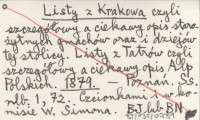 Listy z Krakowa czyli
szczegółowy a ciekawy opis staro
żytnych gmachów oraz i dziejów
tej stolicy. Listy z Tatrów czyli
szczegółowy a ciekawy opis Alp
Polskich. 1874. — Poznań. SS.
nlb. 1, 72. Czcionkami i w ko-
misie W. Simona. BJ lub BN